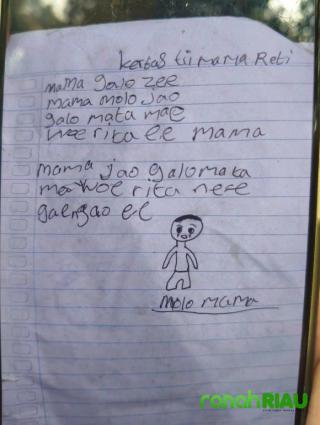 kertas tii mama Reti
mama galo zee
mama molo Jao
galo mata mae
woe rita ee mama
mama jao galo mata
mae woe rita nee
gae ngao ee
molo mama
ranahRIAU